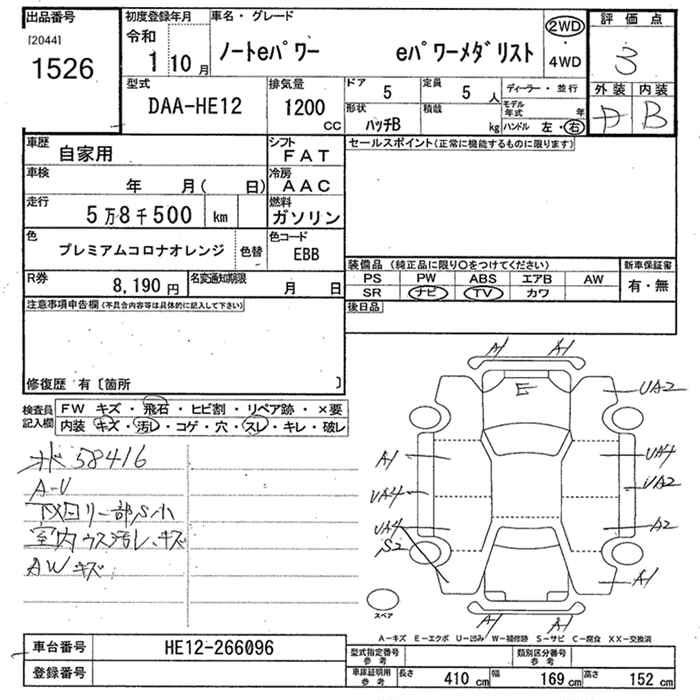 出品番号
[2044]
1526
初度登録年月
令和
1 10 月
車名・グレード
ノートeパワー eパワーメダリスト
2WD
・
4WD
評価点
3
外装 内装
D B
型式
DAA-HE12
排気量
1200
CC
ドア
5
定員
5 人
ディーラー・並行
形状
ハッチB
積載
kg
モデル年式 年
ハンドル 左・右
車歴
自家用
シフト
FAT
セールスポイント(正常に機能するものに限ります)
車検
年 月( 日)
冷房
AAC
走行
5万8千500 km
燃料
ガソリン
色
プレミアムコロナオレンジ
色替
色コード
EBB
装備品 (純正品に限り○をつけてください)
新車保証書
PS PW ABS エアB AW
SR ナビ TV カワ
有・無
R券
8,190 円
名変通知期限
月 日
後日品
注意事項申告欄(不具合内容等は具体的に記入して下さい)
修復歴 有〔箇所 〕
検査員
記入欄
FW キズ・飛石・ヒビ割・リペア跡・×要
内装 キズ・汚レ・コゲ・穴・スレ・キレ・破レ
58416
A-U
下回り一部S小
室内ウス汚レ、キズ
AWキズ
A1 A1
E
UA2
A1
UA4
UA4
UA2
UA4
A2
S2
A1
A1 A1
スペア
A-キズ E-エクボ U-凹み W-補修跡 S-サビ C-腐食 XX-交換済
車台番号
HE12-266096
登録番号
型式指定番号
参考
類別区分番号
参考
車庫証明用
参考
長さ 410 cm
幅 169 cm
高さ 152 cm